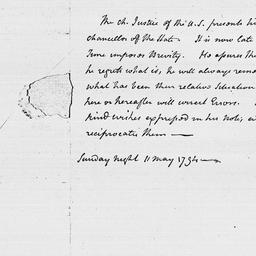 The Ch. Justice of the U.S. presents hi
chancellor of the State. It is now late
Time imposes Brevity. He assures The
he regrets what is, he will always rema
what has been their relative Situation
here or hereafter will correct Errors.
kind wishes expressed in his Note, an
reciprocates them —
Sunday night 11 May 179